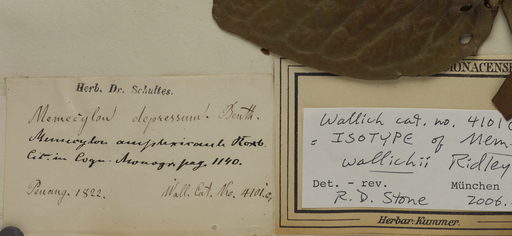 Herb. Dr. Schultes.
Memecylon depressum! Benth.
Memecylon amplexicaule Roxb.
Cit. in Cogn. Monogr. pag. 1140.
Penang. 1822. Wall. Cat. No. 4101.c,
MONACENSE
Wallich cat. no. 4101
= ISOTYPE of Mem
wallichii Ridley
Det. - rev. München
R.D. Stone 2006.
Herbar. Kummer.